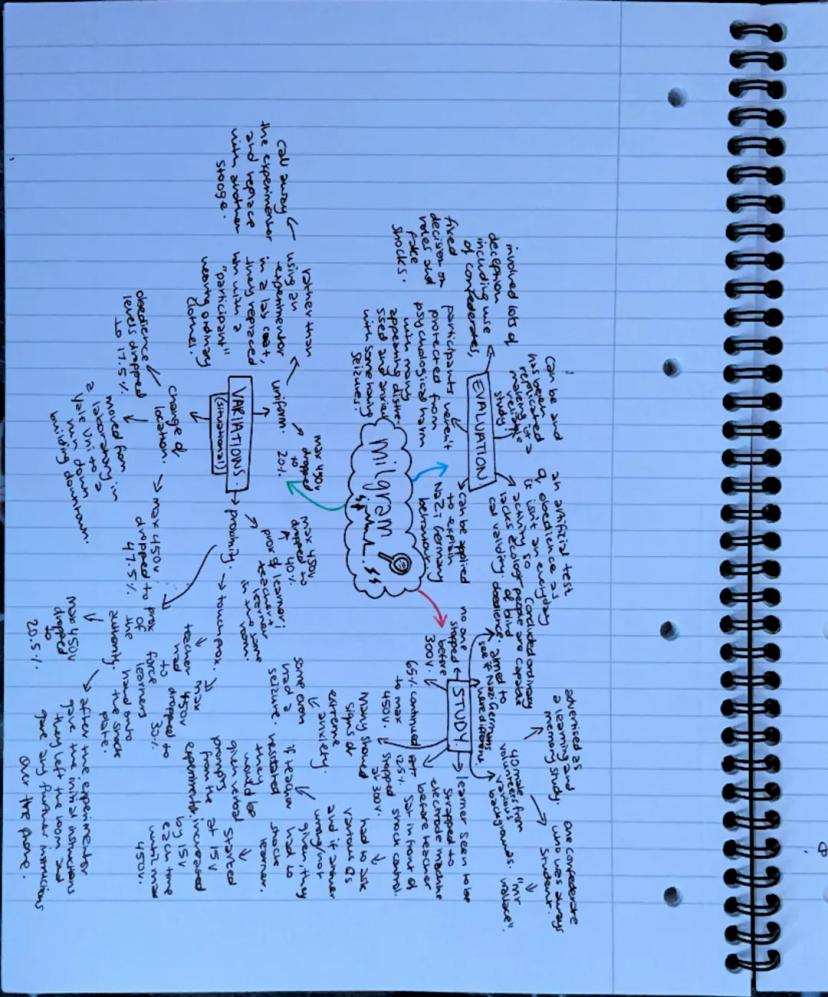 milgram
EVALUATION
involved lots of
deception
including use
of confederates,
fixed
decision on
roles and
fake
shocks.
participants weren't
protected from
psychological harm
with many
appearing distre
ssed and anxious
with some having
seizures.
can be and
has been
replicated
making it a
reliable
study.
an artificial test
of obedience as
it isn't an everyday
activity so
lacks ecologi
cal validity.
can be applied
to explain
Nazi Germany
behaviour.
STUDY
concluded ordinary
people are capable
of blind
obedience.
aimed to
see if Nazi Germans
were different.
no one
stopped
before
300v.
65% continued
to max
450v.
12.5%
stopped
at 300v.
many showed
signs of
extreme
anxiety.
some even
had a
seizure.
advertised as
a learning and
memory study.
40 male
volunteers from
various
backgrounds.
one confederate
who was always
student.
"mr
wallace".
learner seen to be
strapped to
electrode machine
before teacher
sat in front of
shock control.
had to ask
various Qs
and if answer
wrong/not
given, they
had to
shock
learner.
started
at 15v
increased
by 15v
each time
until max
450v.
if teacher
hesitated
they
would be
given verbal
prompts
from the
experimenter.
VARIATIONS.
(situational)
uniform.
max 450v
dropped
to
20%
rather than
using an
experimenter
in a lab coat,
they replaced
him with a
"participant"
wearing ordinary
clothes.
call away
the experimenter
and replace
with another
stooge.
change of
location.
obedience
levels dropped
to 47.5%.
moved from
a laboratory in
Yale Uni to a
run down
building downtown.
max 450v
dropped to
47.5%.
proximity.
prox of learner:
teacher +
learner
in the same
room.
max 450v
dropped to
40%
touch prox.
teacher
had
to
force
learners
hand onto
the shock
plate.
max
450v
dropped to
30%
prox
of
the
authority.
max 450v
dropped
to
20.5%.
after the experimenter
gave the initial instructions
they left the room and
gave any further instrucions
over the phone.